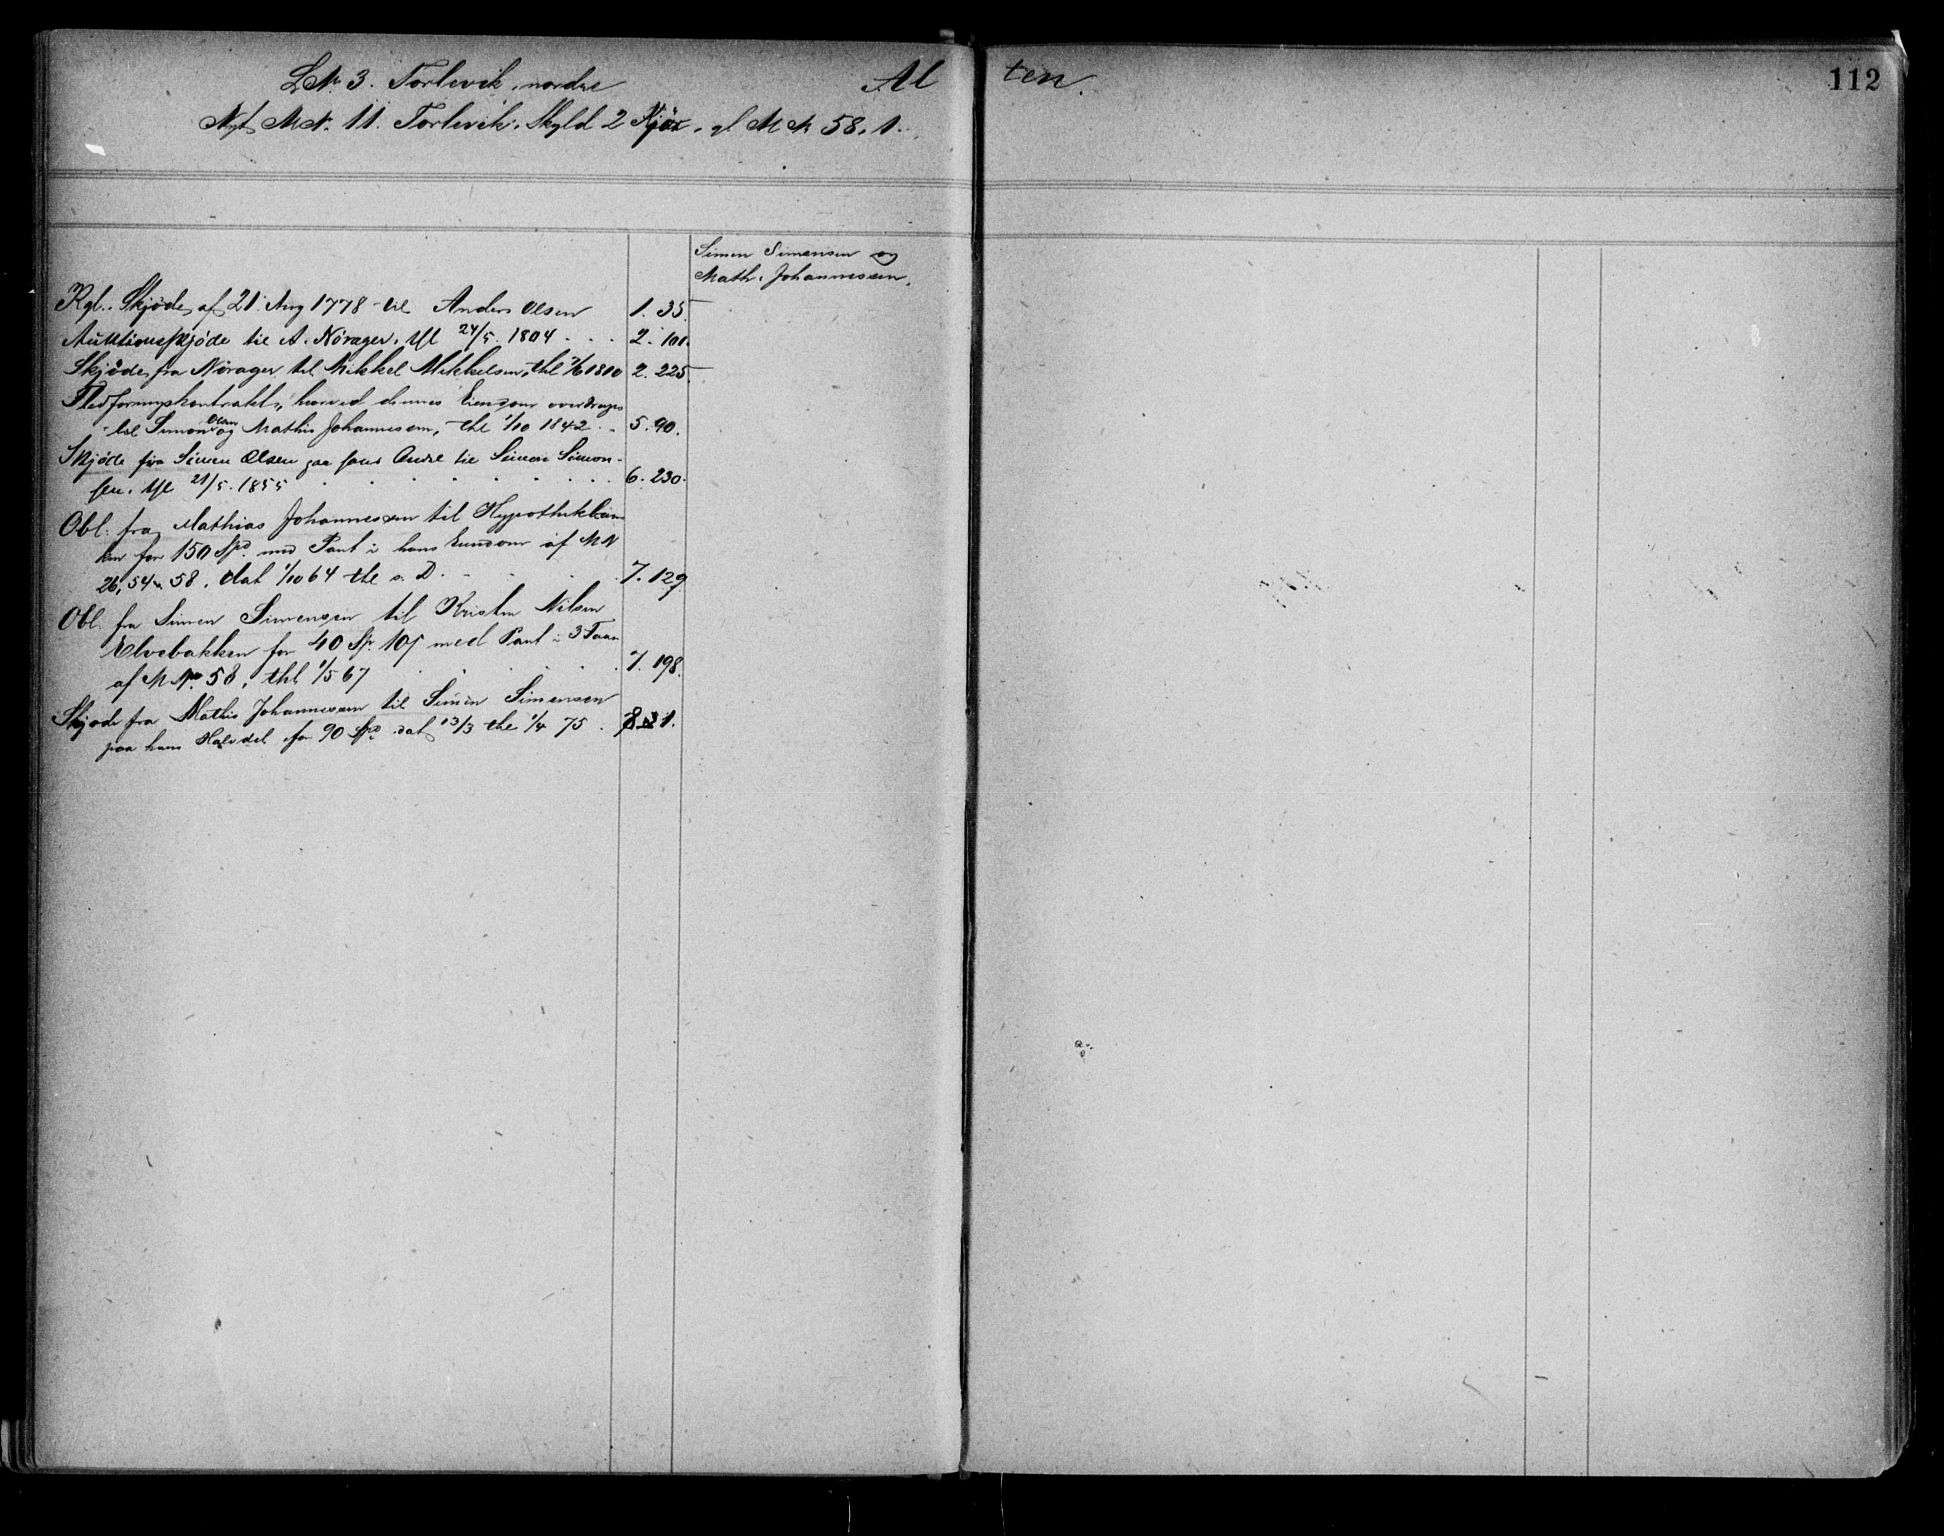 LN. 3. Torlevik, nordre
Al ten.
112
Nyt MN. 11. Torlevik. Skyld 2 Kjör. gl MN 58, 1.
Simen Simensen og
Math. Johannessen.
Kgl. Skjöde af 21 Aug 1778 til Anders Olsen 1. 35.
Auktionsskjöde til A. Nörager, thl 24/5. 1804 . . . 2. 100.
Skjöde fra Nörager til Mikkel Mikkelsen, thl 7/6 1810 2. 225.
Fledforingskontrakt, hvorved dennes Eiendom overdrages
til Simon Olsen og Mathis Johannessen, thl 1/10 1842 . . 5. 90.
Skjöde fra Simen Olsen paa hans Andel til Simen Simon-
sen, thl 21/5. 1855 . . . . . . . 6. 230.
Obl. fra Mathias Johannessen til Hypothekban
ken for 150 Spd. med Pant i hans Eiendom af MN
26, 54 & 58, dat 1/10 64 thl s. D. . . . . 7. 129
Obl. fra Simen Simensen til Kristen Nilsen
Elvebakken for 40 Sp. 10 med Pant i
af MN 58, thl 1/5 67 . . . . . 7. 198.
Skjöde fra Mathis Johannessen til Simen Simensen
paa hans Halvdel for 90 Spd. dat 13/3 thl 1/4 75 . 8. 31.